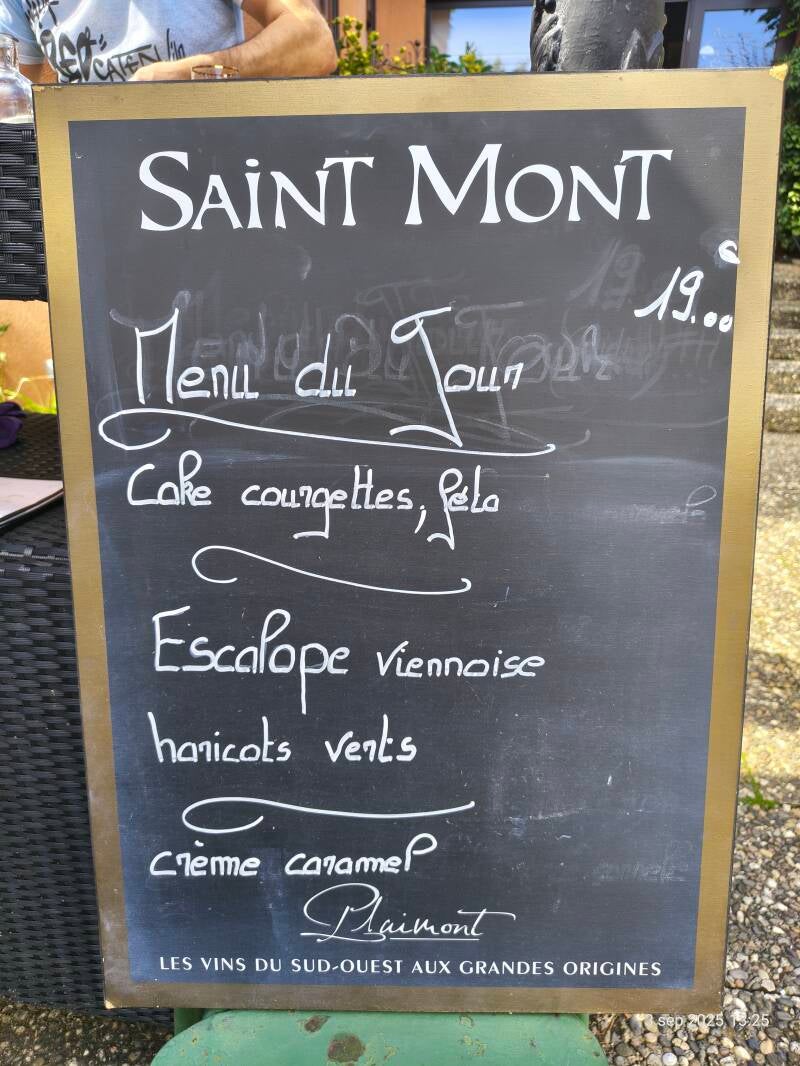 CATEN
SAINT MONT
€
19.00
Menu du Jour
Cake courgettes, féta
Escalope viennoise
haricots verts
crème caramel
Plaimont
LES VINS DU SUD-OUEST AUX GRANDES ORIGINES
sep 2025 13:25